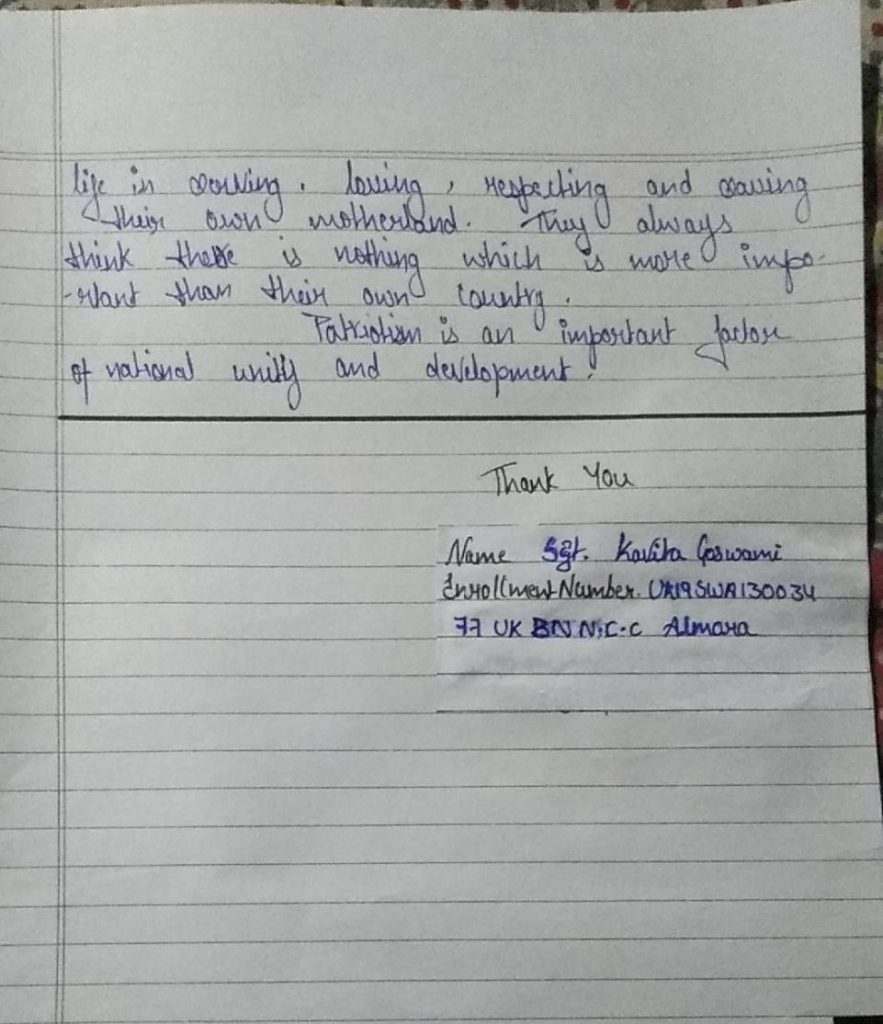 life in serving, loving, respecting and saving
their own motherland. They always
think there is nothing which is more impo-
-rtant than their own country.
Patriotism is an important factor
of national unity and development.
Thank You
Name Sgt. Kavita Goswami
Enrollment Number. UK19SWA130034
77 UK BN N.C.C Almora